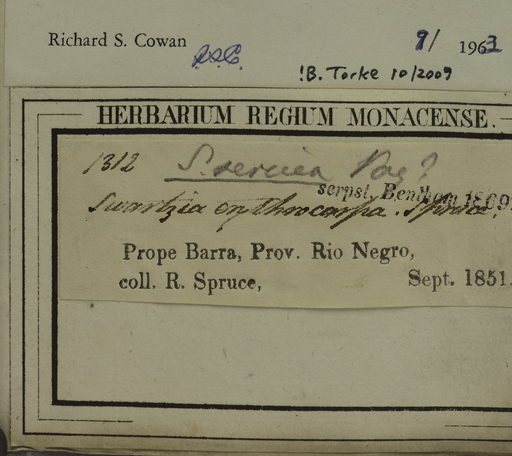 Richard S. Cowan R.S.C. 9/ 1963
!B. Torke 10/2009
HERBARIUM REGIUM MONACENSE.
1312 S. sericea Vog?
scrpst. Benthom 1869
Swartzia erythrocarpa. Spruce.
Prope Barra, Prov. Rio Negro,
coll. R. Spruce, Sept. 1851.